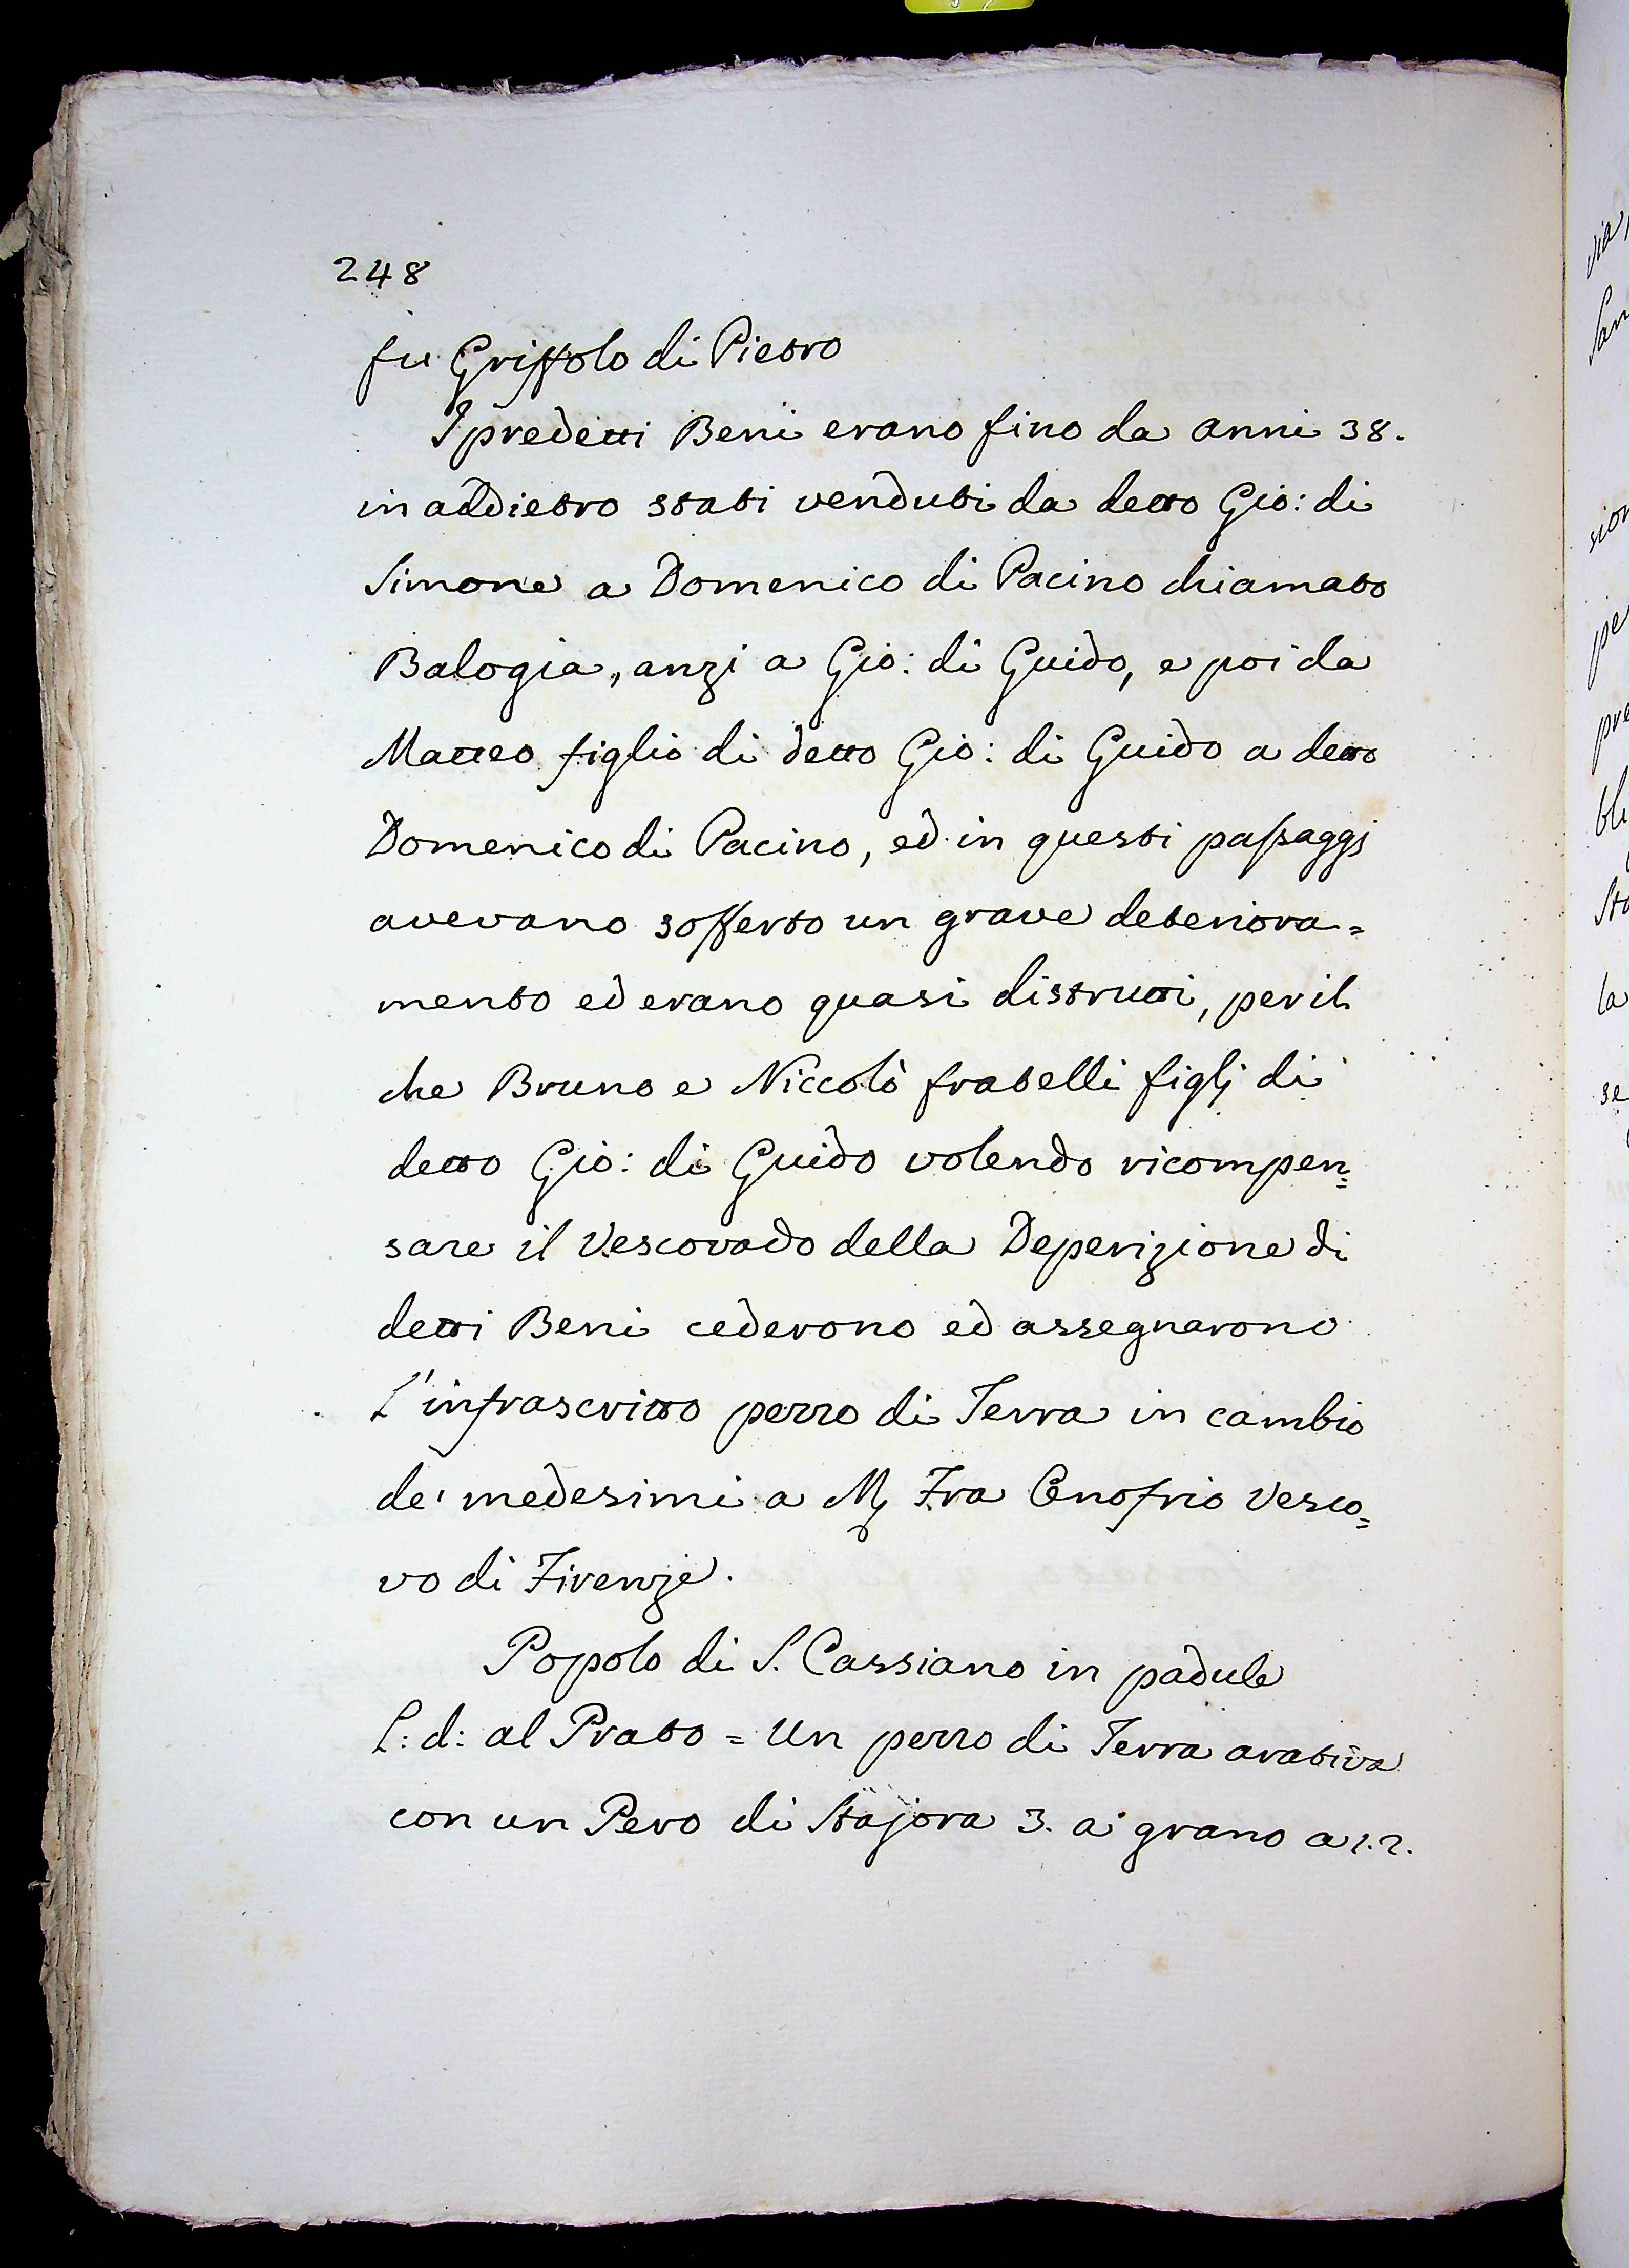 248
fu Griffolo di Pietro
I predetti Beni erano fino da anni 38.
in addietro stati venduti da detto Gio: di
Simone a Domenico di Pacino chiamato
Balogia, anzi a Gio: di Guido, e poi da
Matteo figlio di detto Gio: di Guido a detto
Domenico di Pacino, ed in questi passaggj
avevano sofferto un grave deteriora=
mento ed erano quasi distrutti, per il
che Bruno e Niccolò fratelli figlj di
detto Gio: di Guido volendo ricompen=
sare il Vescovado della Deperizione di
detti Beni cederono ed assegnarono
l'infrascritto pezzo di Terra in cambio
de' medesimi a M. Fra Onofrio Vesco=
vo di Firenze.
Popolo di S. Cassiano in padule
l: d: al Prato = Un pezzo di Terra arativa
con un Pero di Stajora 3. a grano a